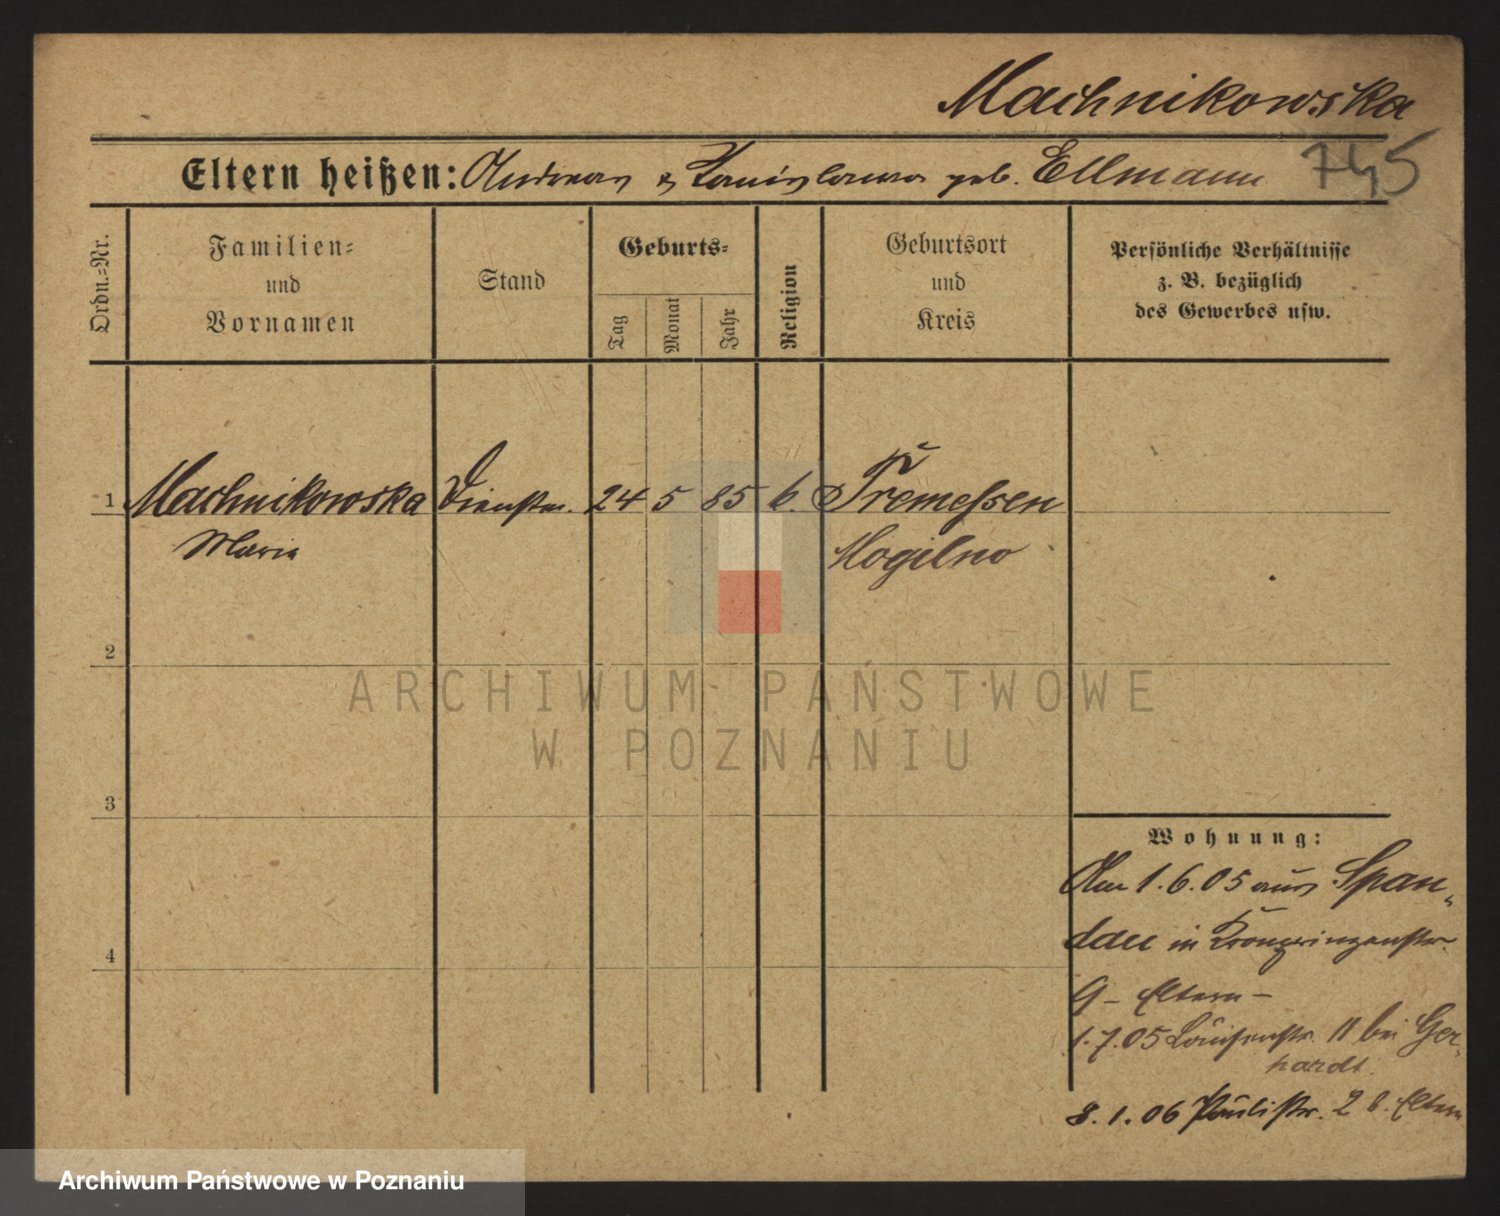 Machnikowska
Eltern heißen: Andreas & Stanislawa geb. Ellmann 745
Ordn.=Nr.
Familien=
und
Vornamen
Stand
Geburts=
Tag
Monat
Jahr
Religion
Geburtsort
und
Kreis
Persönliche Verhältnisse
z. B. bezüglich
des Gewerbes usw.
1 Machnikowska Dienstm. 24 5 85 k. Tremessen
Marie Mogilno
2
3
4
Wohnung:
Am 1.6.05 aus Span„
dau in Kronprinzenstr.
9 – Eltern –
1.7.05 Louisenstr. 11 bei Ger„
hardt.
8.1.06 Paulistr. 2 b. Eltern
ARCHIWUM PAŃSTWOWE
W POZNANIU
Archiwum Państwowe w Poznaniu